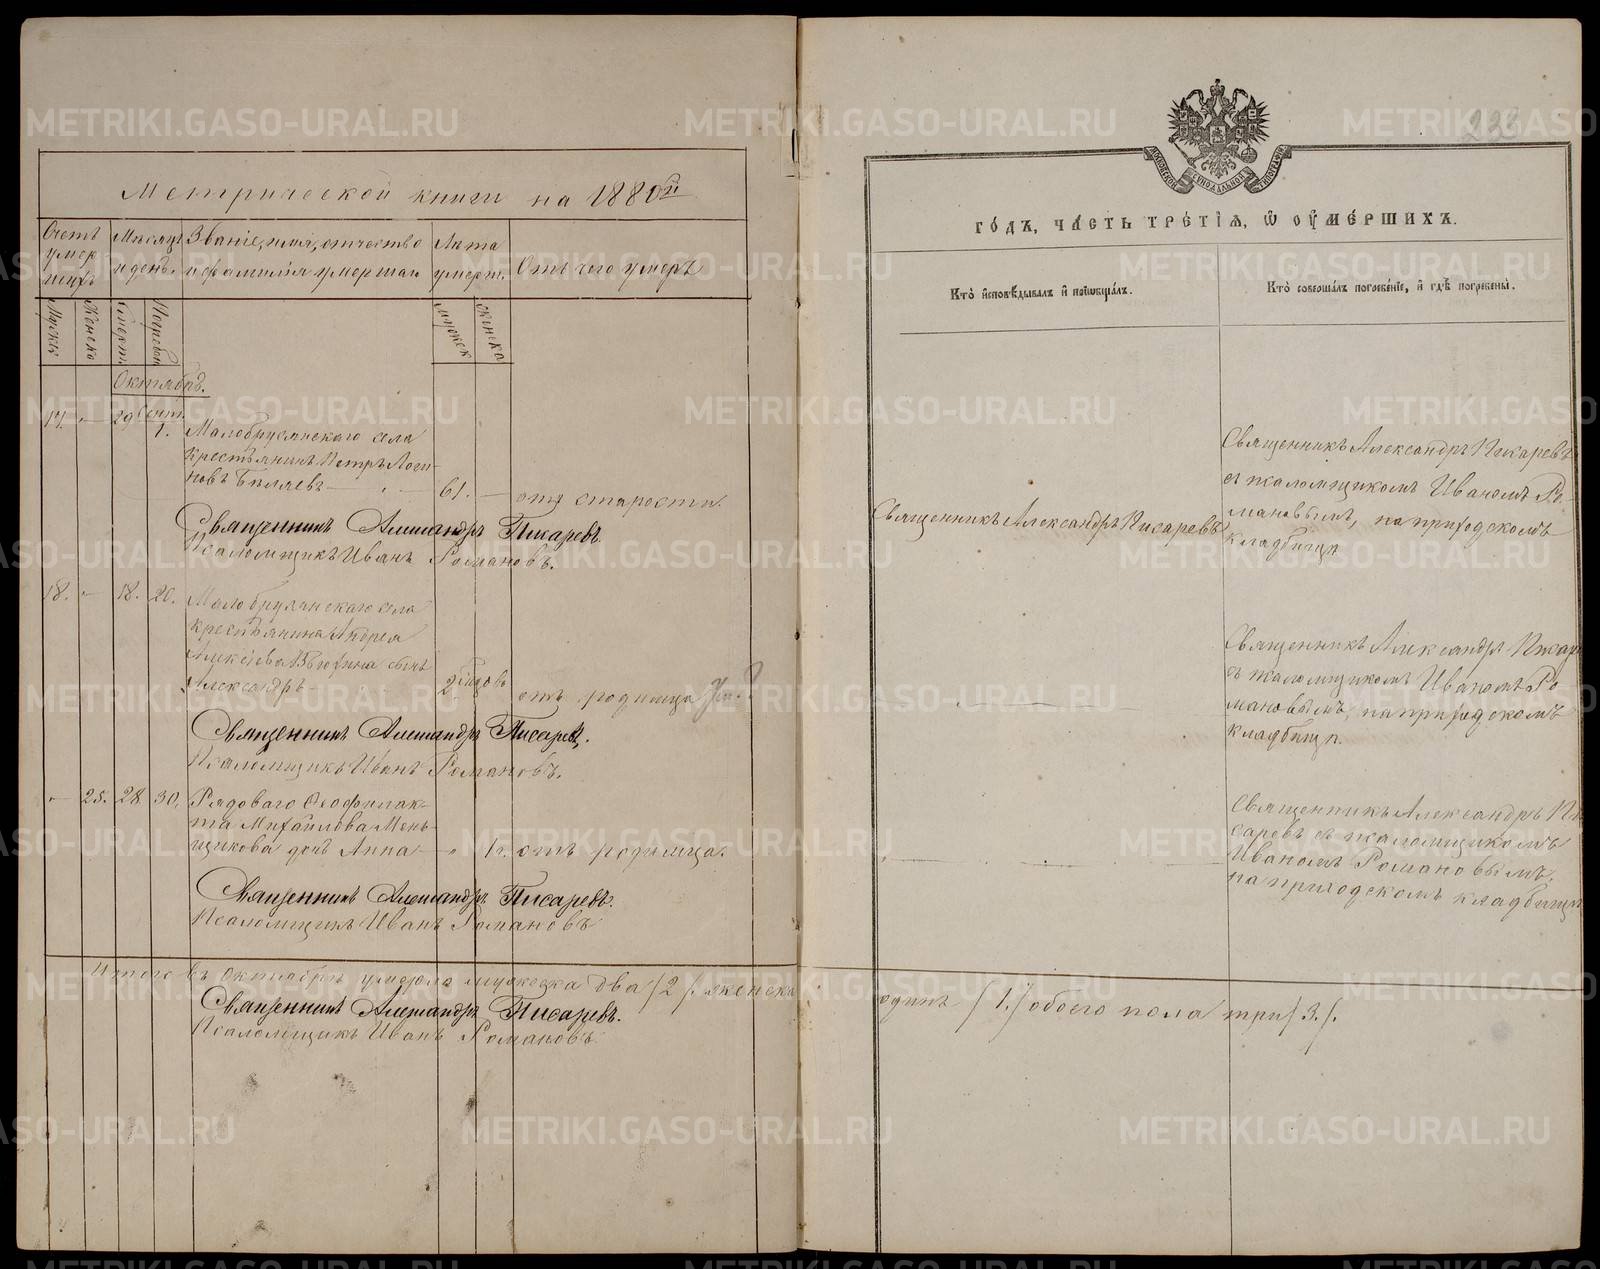 Метрической книги на 1880й
Счетъ умершихъ
Мѣсяцъ и день.
Званіе, имя, отчество и фамилія умершаго
Лѣта умерш.
Отъ чего умеръ
Мужск.
Женск.
Смерт.
Погребен.
мужеск.
женска
Октябрь.
17. " 29 Сент. 1. Малобрусянскаго села
крестьянинъ Петръ Логи-
новъ Бѣляевъ 61. — отъ старости.
Священникъ Александръ Писаревъ.
Псаломщикъ Иванъ Романовъ.
18. " 18. 20. Малобрусянскаго села
крестьянина Андрея
Алексѣева сынъ
Александръ 2 отъ родимца
Священникъ Александръ Писаревъ.
Псаломщикъ Иванъ Романовъ.
" 25. 28. 30. Рядоваго Ѳеофилак-
та Михайлова Мень-
щикова дочь Анна " отъ родимца.
Священникъ Александръ Писаревъ.
Псаломщикъ Иванъ Романовъ
Итого въ Октябрѣ умерло мужеска два /2/. женска
Священникъ Александръ Писаревъ.
Псаломщикъ Иванъ Романовъ.
МОСКОВСКОЙ СѴНОДАЛЬНОЙ ТИПОГРАФІИ
го́дъ, ча́сть тре́тїѧ, ѡ҆ оу҆ме́ршихъ.
Кто̀ и҆сповѣ́дывалъ и҆ прїѡбща́лъ.
Кто̀ соверша́лъ погребе́нїе, и҆ гдѣ̀ погребены̀.
Священникъ Александръ Писаревъ
Священникъ Александръ Писаревъ
съ псаломщикомъ Иваномъ Ро-
мановымъ, на приходскомъ
кладбищѣ
Священникъ Александръ Писар
съ псаломщикомъ Иваномъ Ро
мановымъ, на приходскомъ
кладбищѣ.
Священникъ Александръ Пи
саревъ съ псаломщикомъ
Иваномъ Романовымъ.
на приходскомъ кладбищѣ
одинъ /1./ обоего пола три /3./.
METRIKI.GASO-URAL.RU